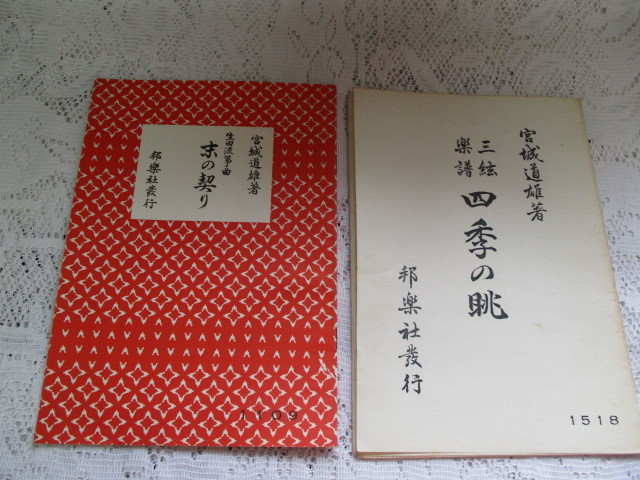 宮城道雄著
生田流箏曲
末の契り
邦樂社發行
1109
宮城道雄著
三絃
楽譜
四季の眺
邦樂社發行
1518